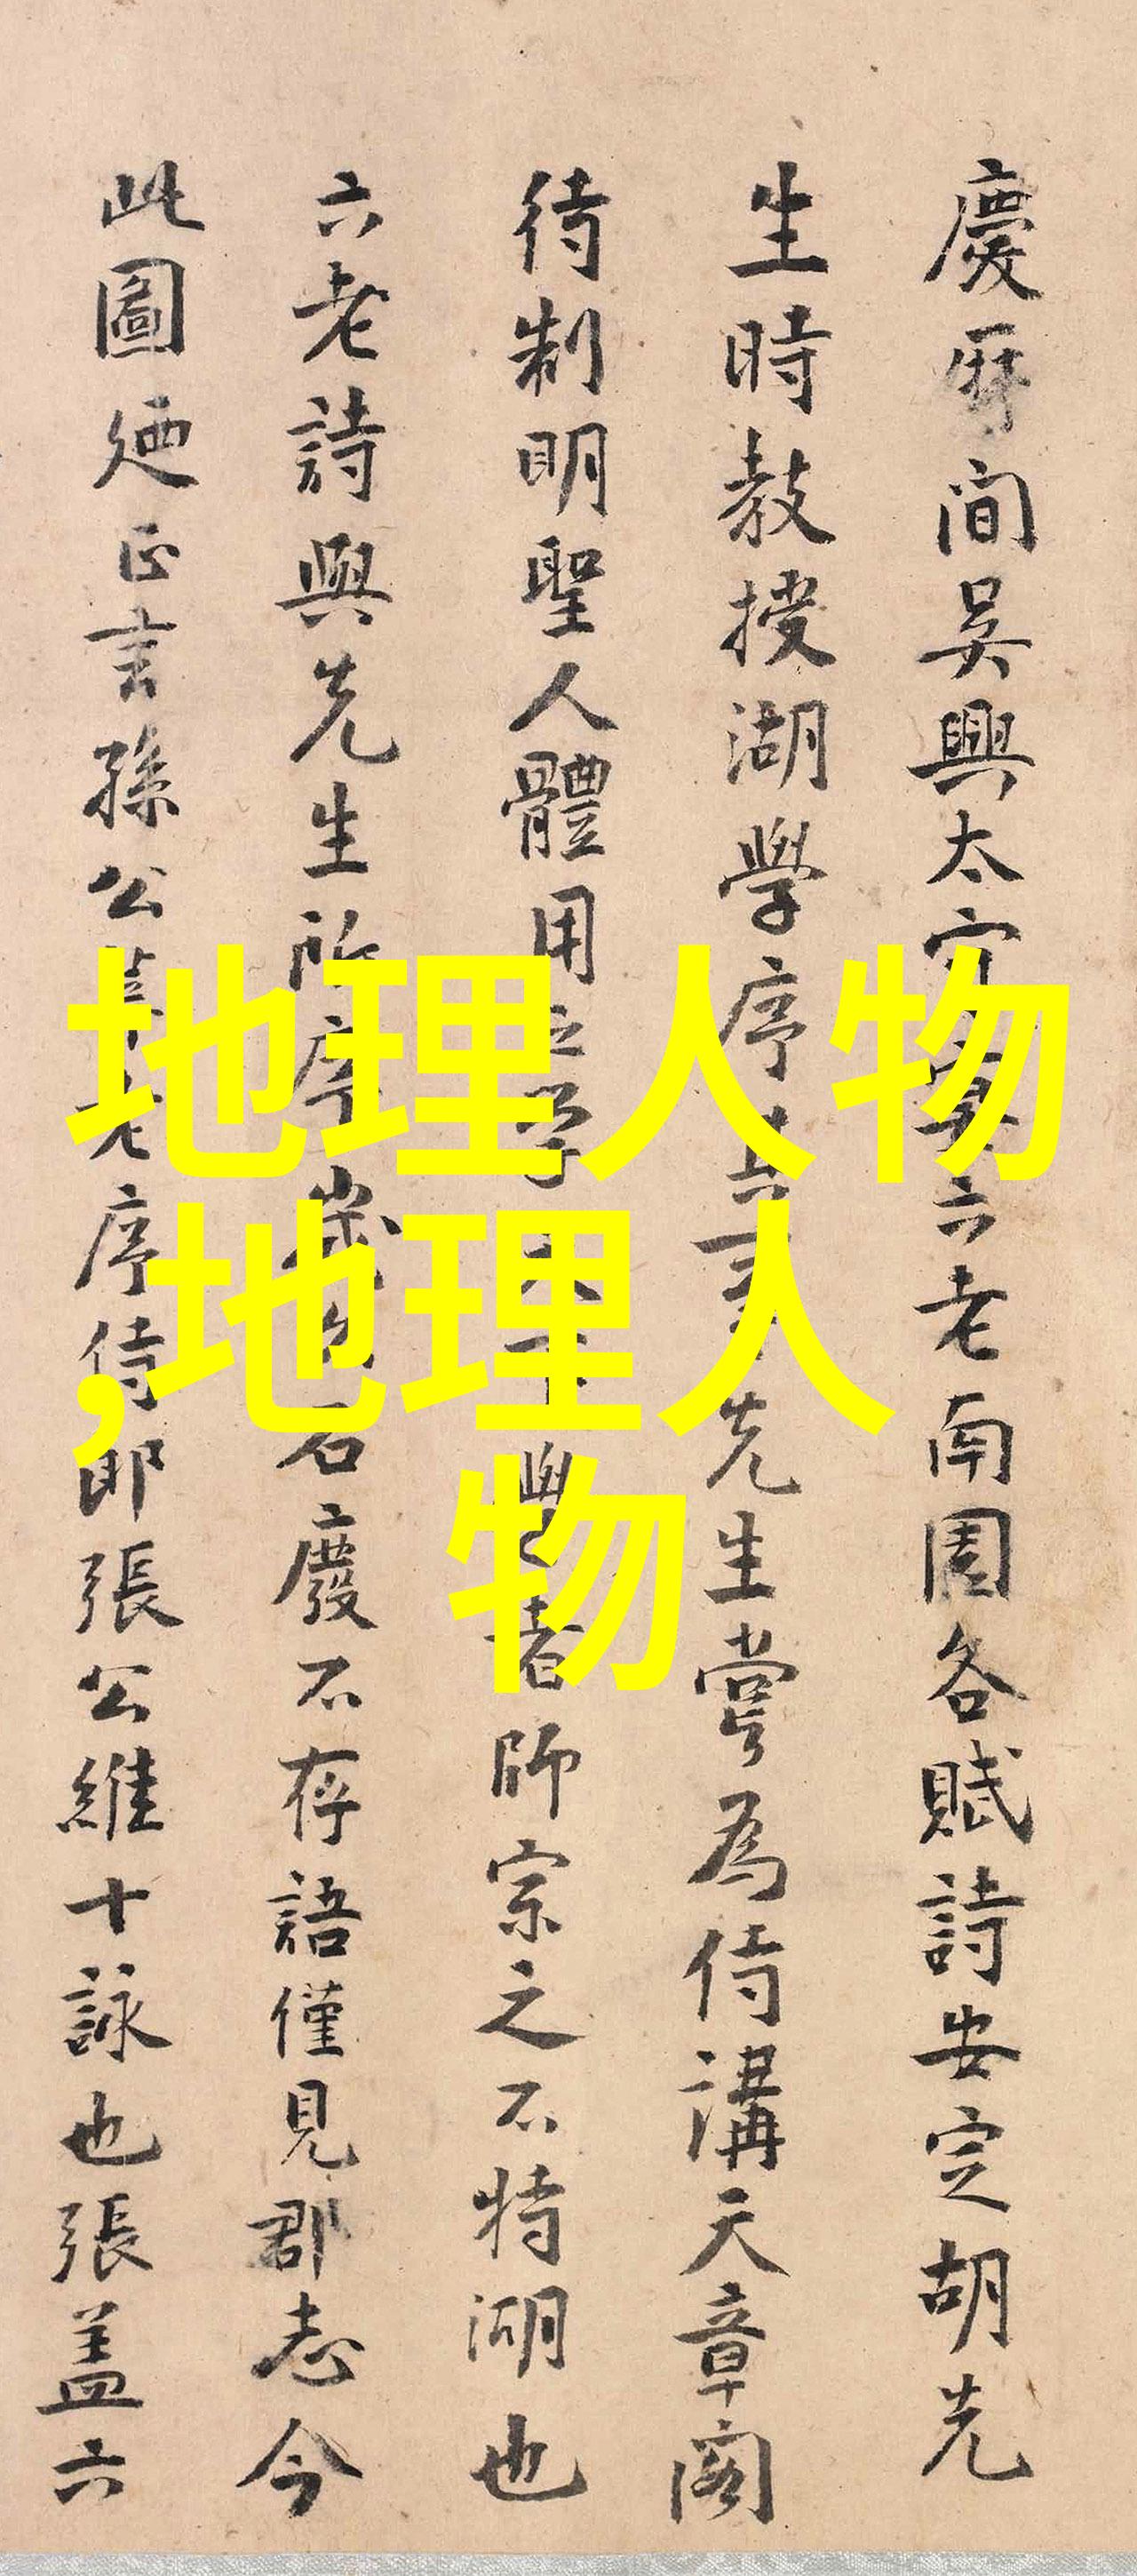 慶曆間吴興太守宴六老南園各賦詩安定胡先
生時教授湖學序其事先生嘗為侍講天章閣
待制明聖人體用之學天下學者師宗之不特湖也
六老詩與先生所序歲久石廢不存語僅見郡志今
此圖廼正言孫公老序侍郎張公維十詠也張盖六
地理人物
,地理人
物